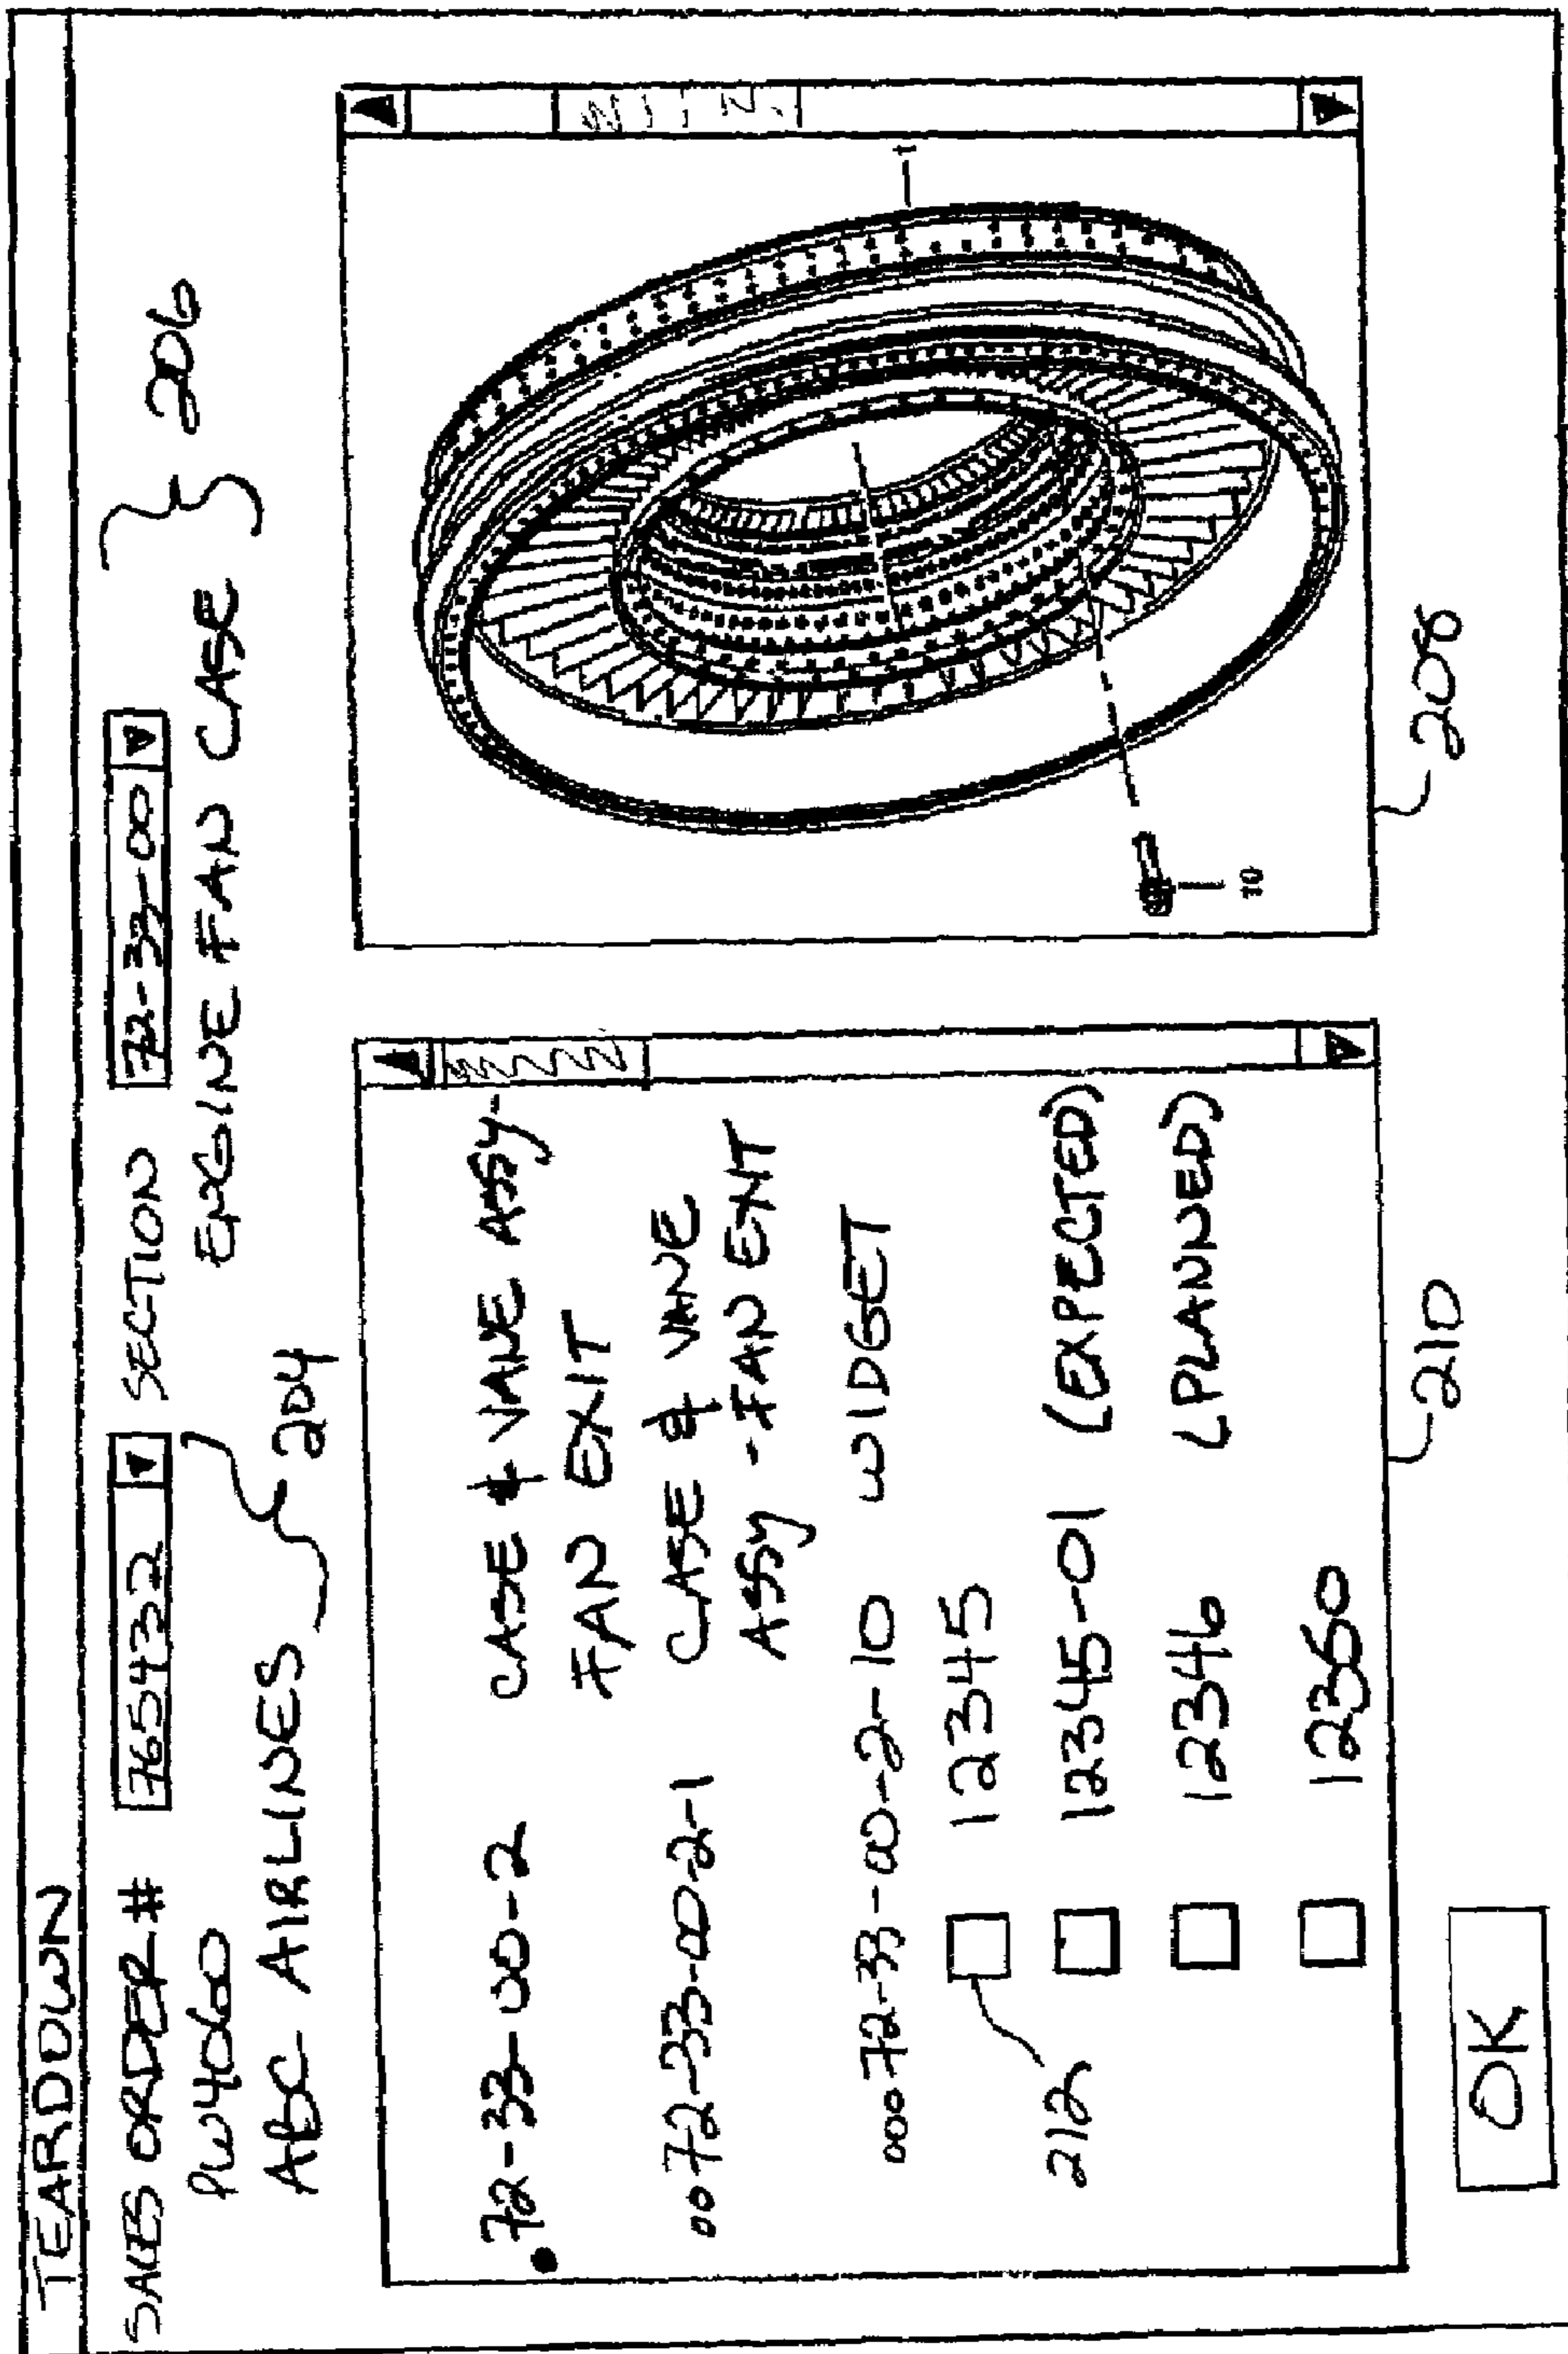 TEARDOWN
SALES ORDER # 765432 SECTION 72-33-00
PW4060 ENGINE FAN CASE
ABC AIRLINES
204
206
.72-33-00-2 CASE & VANE ASSY-
FAN EXIT
0072-33-00-2-1 CASE & VANE
ASSY - FAN EXIT
00072-33-00-2-10 WIDGET
12345
212
12345-01 (EXPECTED)
12346 (PLANNED)
12350
210
OK
1
10
208